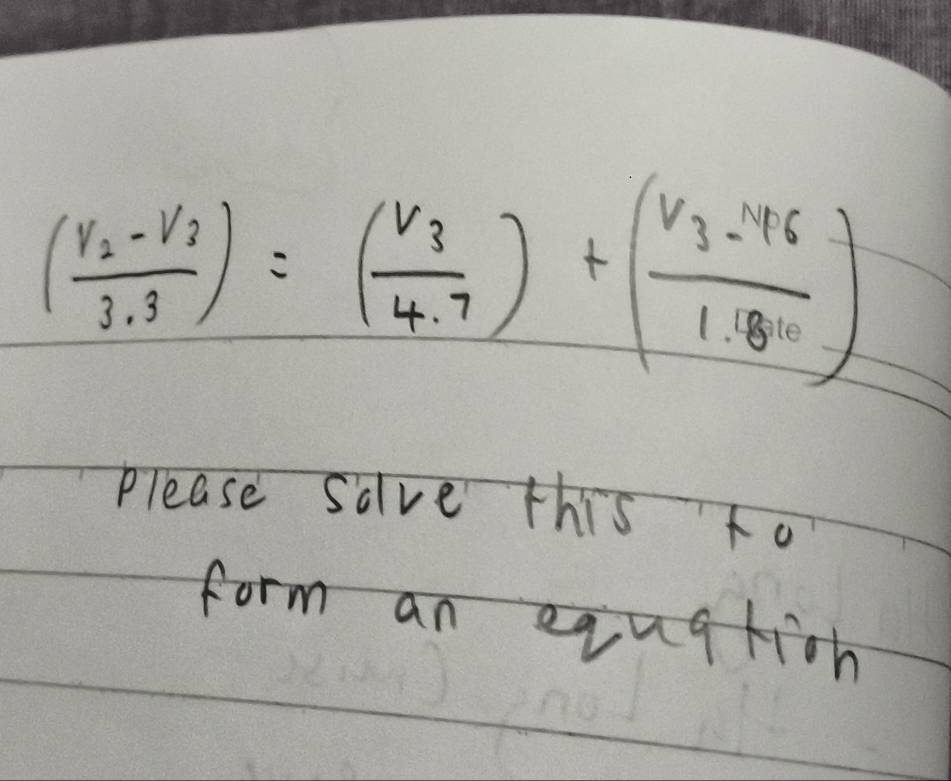 (V₂ - V₃ / 3.3) = (V₃ / 4.7) + (V₃ - 6 / 1.8)
Please solve this to
form an equation